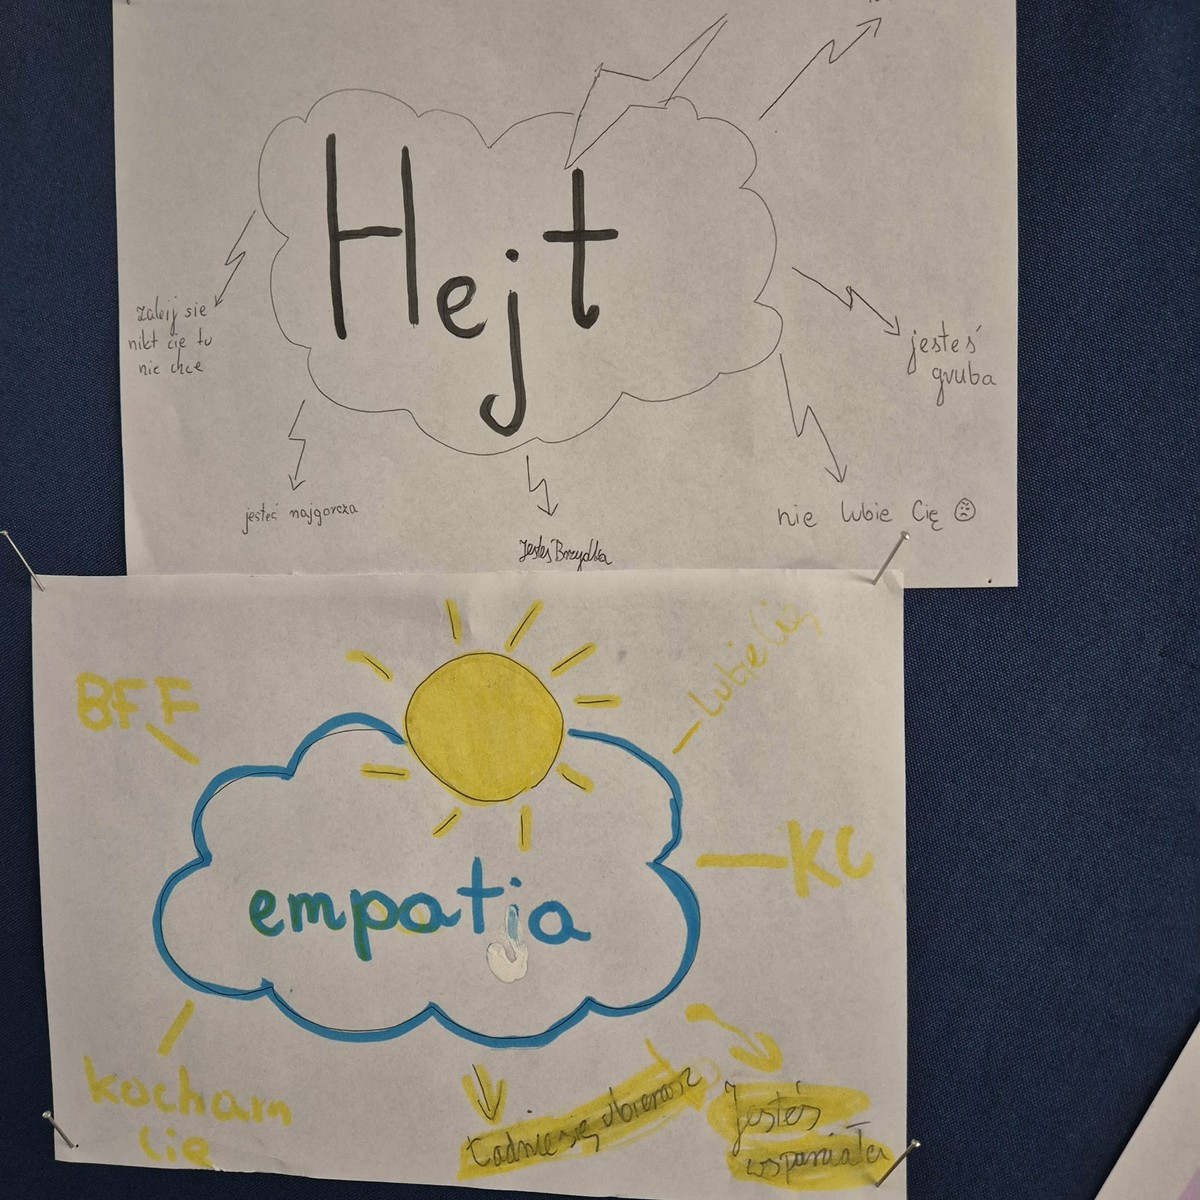 Hejt
zabij sie
nikt cie tu
nie chce
jesteś
gruba
jesteś najgorsza
nie lubie Cię
Jesteś Brzydka
BFF
Lubie Cię
KC
empatia
kocham
Cię
Ładnie się ubierasz
Jesteś
wspaniała